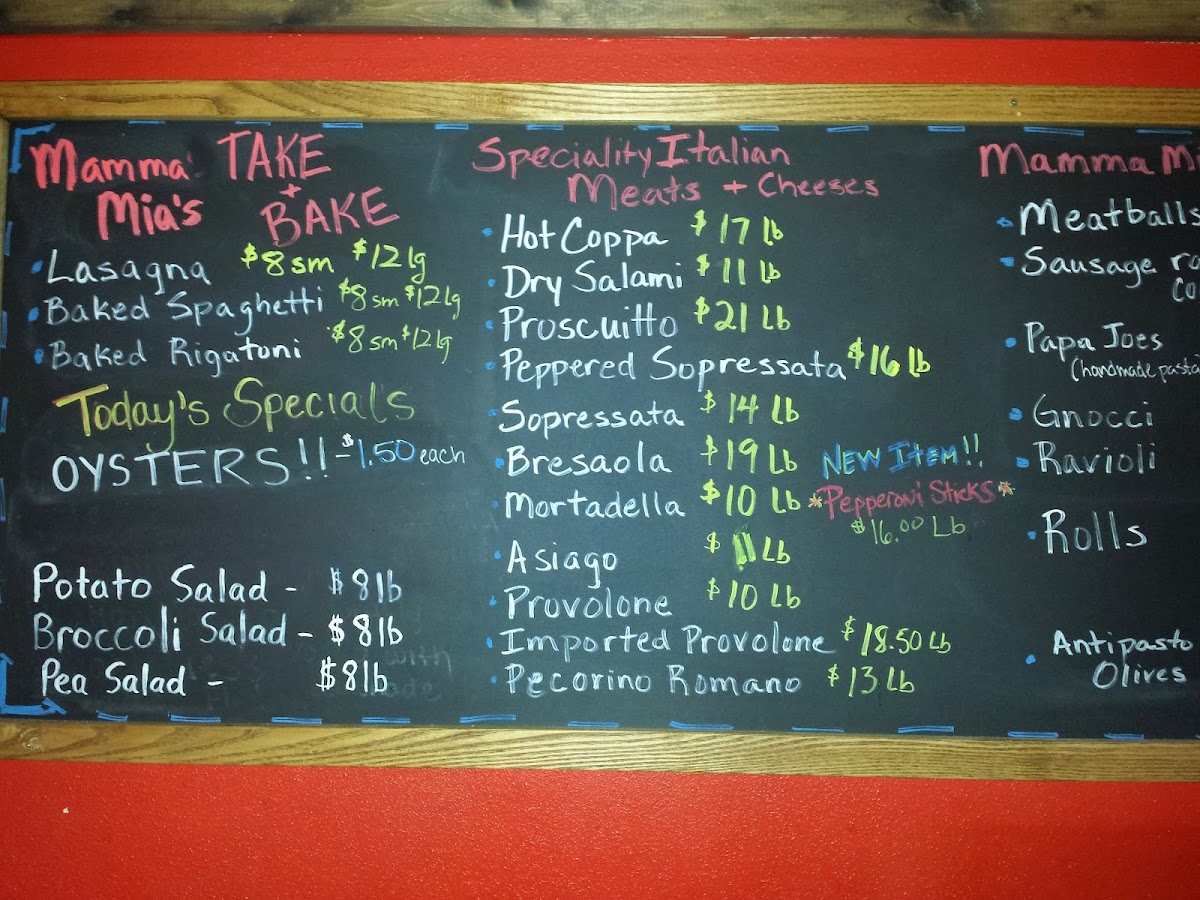 Mamma TAKE
Mia's + BAKE
Lasagna $8 sm $12 lg
Baked Spaghetti $8 sm $12 lg
Baked Rigatoni $8 sm $12 lg
Today's Specials
OYSTERS!! - $1.50 each
Potato Salad - $8 lb
Broccoli Salad - $8 lb
Pea Salad - $8 lb
Speciality Italian
Meats + Cheeses
Hot Coppa $17 lb
Dry Salami $11 lb
Proscuitto $21 Lb
Peppered Sopressata $16 lb
Sopressata $14 Lb
Bresaola $19 Lb
Mortadella $10 Lb
Asiago $11 Lb
Provolone $10 Lb
Imported Provolone $18.50 Lb
Pecorino Romano $13 Lb
NEW ITEM!!
*Pepperoni Sticks*
$16.00 Lb
Mamma Mi
Meatballs
Sausage ro
co
Papa Joes
(handmade pasta
Gnocci
Ravioli
Rolls
Antipasto
Olives